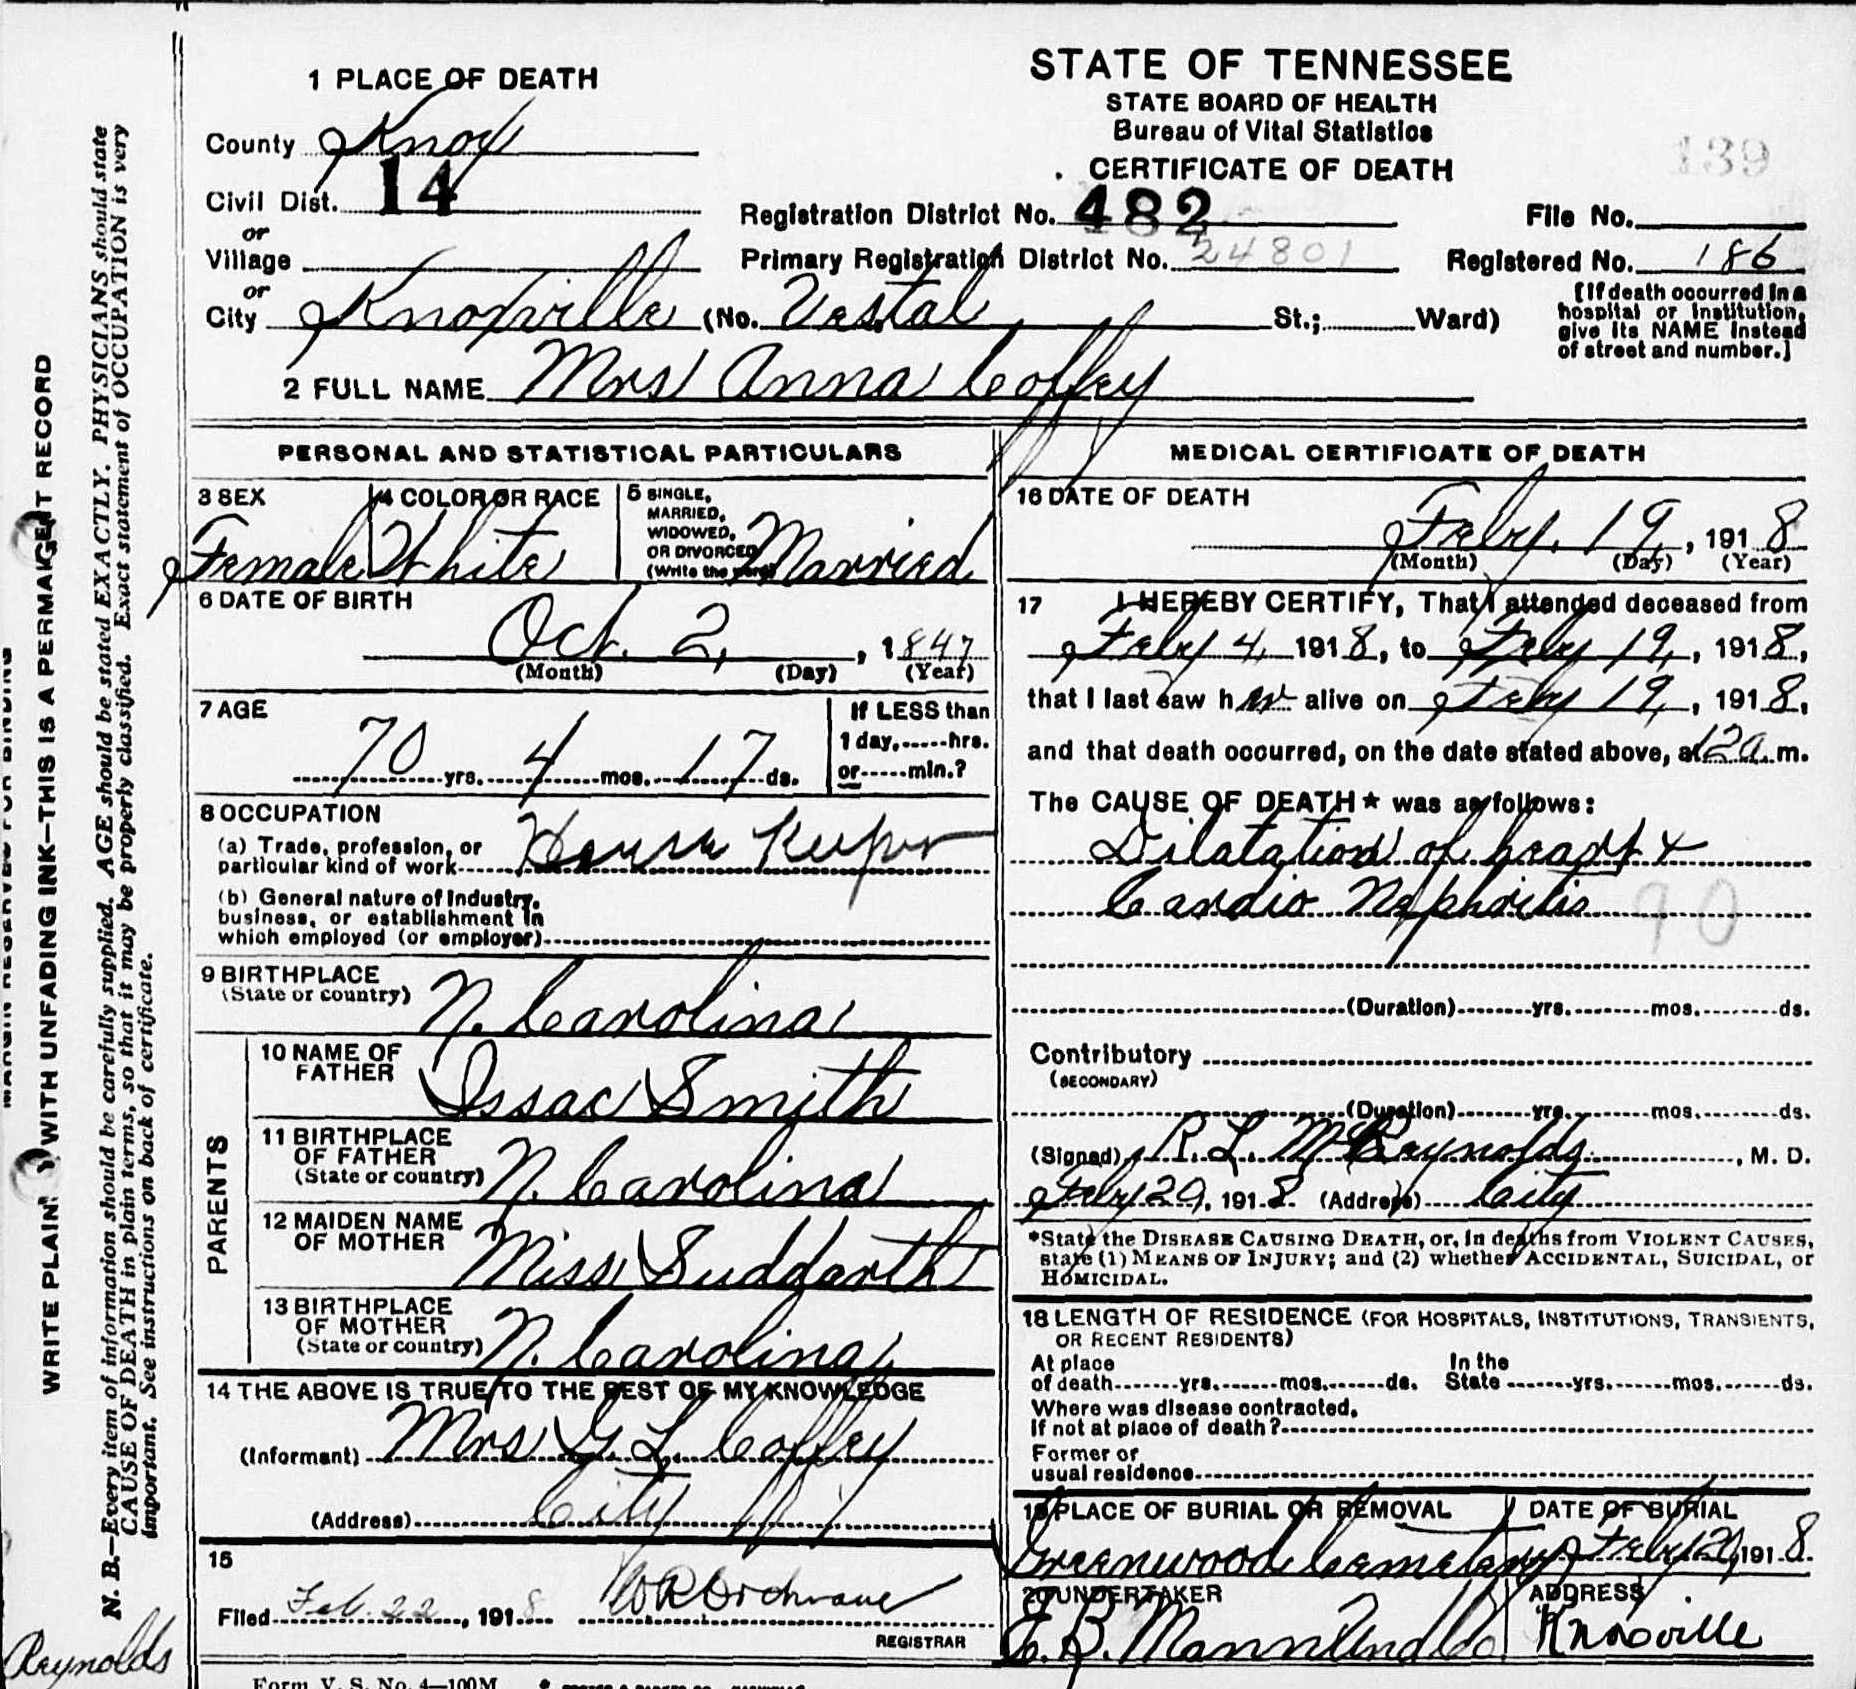 1 PLACE OF DEATH
County Knox
Civil Dist. 14
or
Village
or
City Knoxville (No. Vestal St.; Ward)
STATE OF TENNESSEE
STATE BOARD OF HEALTH
Bureau of Vital Statistics
CERTIFICATE OF DEATH
139
Registration District No. 482
File No.
Primary Registration District No. 24801
Registered No. 186
[If death occurred in a
hospital or institution,
give its NAME instead
of street and number.]
2 FULL NAME Mrs Anna Coffey
PERSONAL AND STATISTICAL PARTICULARS
3 SEX
Female
4 COLOR OR RACE
White
5 SINGLE,
MARRIED,
WIDOWED,
OR DIVORCED
(Write the word)
Married
6 DATE OF BIRTH
Oct. 2, , 1847
(Month) (Day) (Year)
7 AGE
70 yrs. 4 mos. 17 ds.
If LESS than
1 day, hrs.
or min.?
8 OCCUPATION
(a) Trade, profession, or
particular kind of work House Keeper
(b) General nature of industry,
business, or establishment in
which employed (or employer)
9 BIRTHPLACE
(State or country) N. Carolina
PARENTS
10 NAME OF
FATHER Issac Smith
11 BIRTHPLACE
OF FATHER
(State or country) N. Carolina
12 MAIDEN NAME
OF MOTHER Miss Suddarth
13 BIRTHPLACE
OF MOTHER
(State or country) N. Carolina
14 THE ABOVE IS TRUE TO THE BEST OF MY KNOWLEDGE
(Informant) Mrs G. L. Coffey
(Address) City
15
Filed Feb. 22, 1918
REGISTRAR
MEDICAL CERTIFICATE OF DEATH
16 DATE OF DEATH
Feby. 19, 1918
(Month) (Day) (Year)
17 I HEREBY CERTIFY, That I attended deceased from
Feby 4, 1918, to Feby 19, 1918,
that I last saw her alive on Feby 19, 1918,
and that death occurred, on the date stated above, at 12 a. m.
The CAUSE OF DEATH* was as follows:
Dilatation of heart &
Cardio Nephritis
90
(Duration) yrs. mos. ds.
Contributory
(SECONDARY)
(Duration) yrs. mos. ds.
(Signed) R. L. McReynolds, M. D.
Feby 20, 1918 (Address) City
*State the DISEASE CAUSING DEATH, or, in deaths from VIOLENT CAUSES,
state (1) MEANS OF INJURY; and (2) whether ACCIDENTAL, SUICIDAL, or
HOMICIDAL.
18 LENGTH OF RESIDENCE (FOR HOSPITALS, INSTITUTIONS, TRANSIENTS,
OR RECENT RESIDENTS)
At place
of death yrs. mos. ds.
In the
State yrs. mos. ds.
Where was disease contracted,
if not at place of death?
Former or
usual residence
19 PLACE OF BURIAL OR REMOVAL
Greenwood Cemetery
DATE OF BURIAL
Feby 20, 1918
20 UNDERTAKER
E. B. Mann Und Co.
ADDRESS
Knoxville
WRITE PLAINLY WITH UNFADING INK—THIS IS A PERMANENT RECORD
N. B.—Every item of information should be carefully supplied. AGE should be stated EXACTLY. PHYSICIANS should state
CAUSE OF DEATH in plain terms, so that it may be properly classified. Exact statement of OCCUPATION is very
important. See instructions on back of certificate.
Reynolds
Form V. S. No. 4—100M